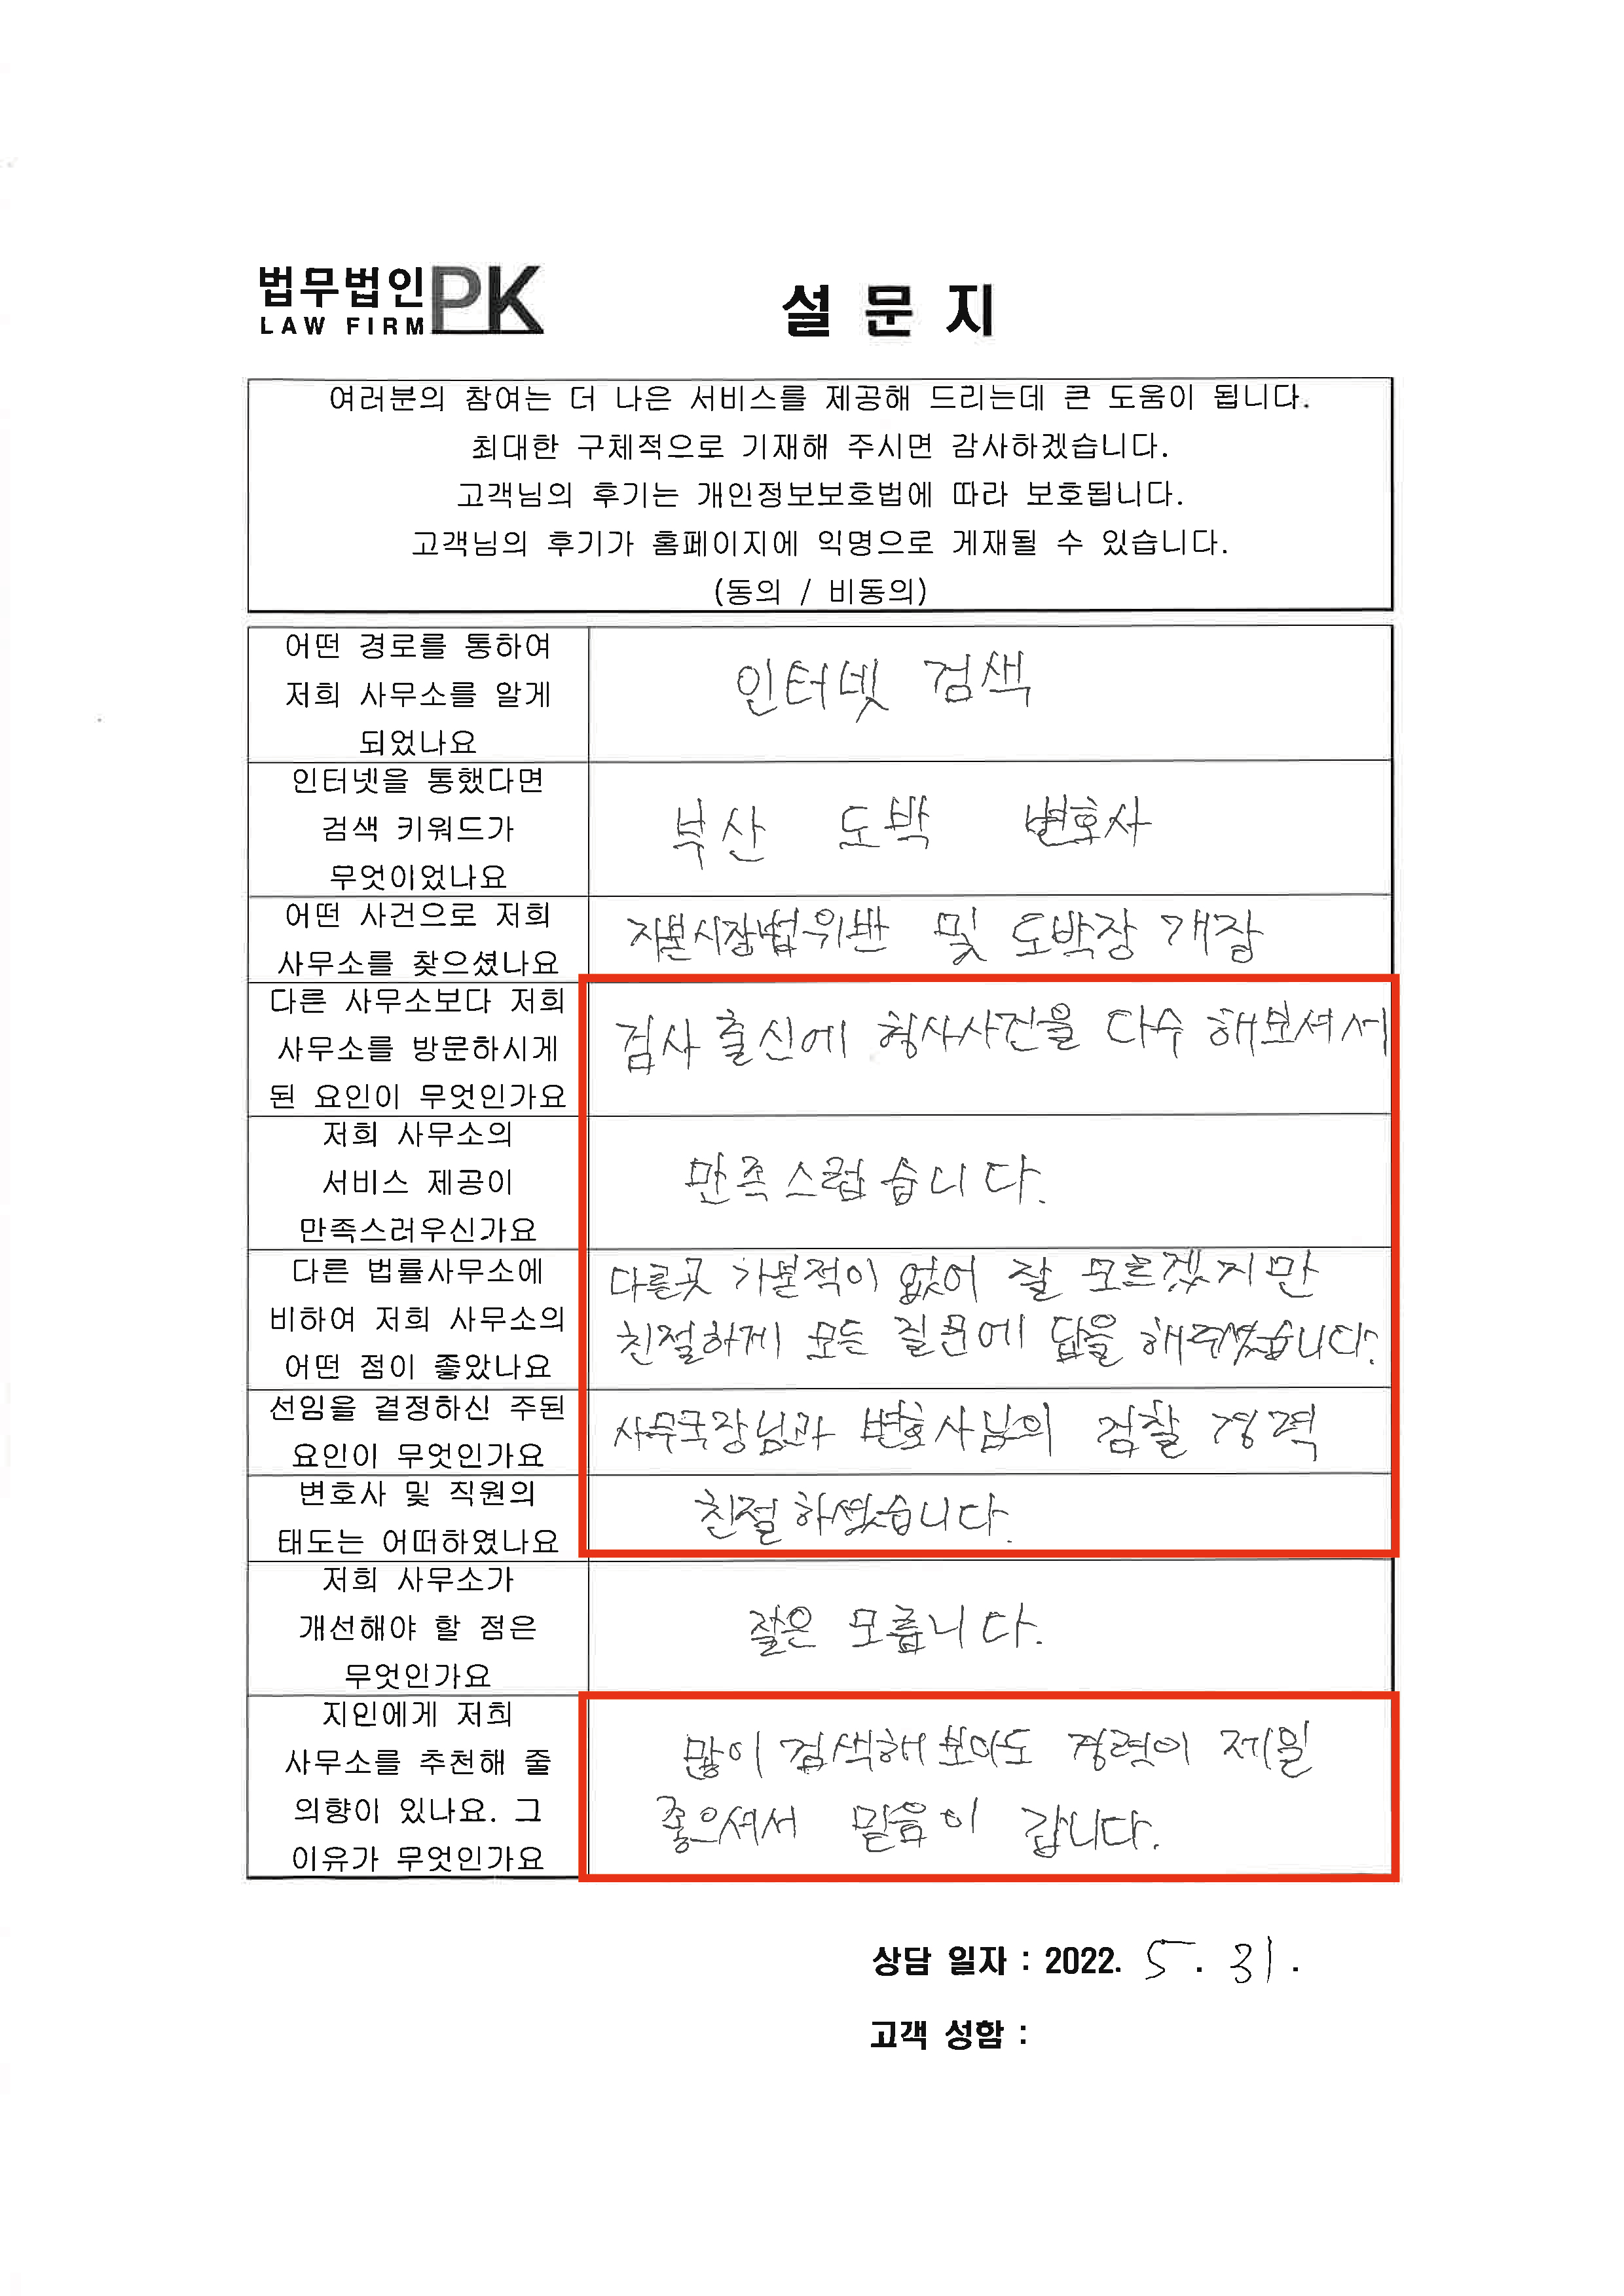 법무법인 PK
LAW FIRM
설 문 지
여러분의 참여는 더 나은 서비스를 제공해 드리는데 큰 도움이 됩니다.
최대한 구체적으로 기재해 주시면 감사하겠습니다.
고객님의 후기는 개인정보보호법에 따라 보호됩니다.
고객님의 후기가 홈페이지에 익명으로 게재될 수 있습니다.
(동의 / 비동의)
어떤 경로를 통하여
저희 사무소를 알게
되었나요
인터넷 검색
인터넷을 통했다면
검색 키워드가
무엇이었나요
부산 도박 변호사
어떤 사건으로 저희
사무소를 찾으셨나요
자본시장법위반 및 도박장 개장
다른 사무소보다 저희
사무소를 방문하시게
된 요인이 무엇인가요
검사 출신에 형사사건을 다수 해보셔서
저희 사무소의
서비스 제공이
만족스러우신가요
만족스럽습니다.
다른 법률사무소에
비하여 저희 사무소의
어떤 점이 좋았나요
다른곳 가본적이 없어 잘 모르겠지만
친절하게 모든 질문에 답을 해주셨습니다.
선임을 결정하신 주된
요인이 무엇인가요
사무국장님과 변호사님의 검찰 경력
변호사 및 직원의
태도는 어떠하였나요
친절하셨습니다.
저희 사무소가
개선해야 할 점은
무엇인가요
잘은 모릅니다.
지인에게 저희
사무소를 추천해 줄
의향이 있나요. 그
이유가 무엇인가요
많이 검색해 보아도 경력이 제일
좋으셔서 믿음이 갑니다.
상담 일자 : 2022. 5. 31.
고객 성함 :